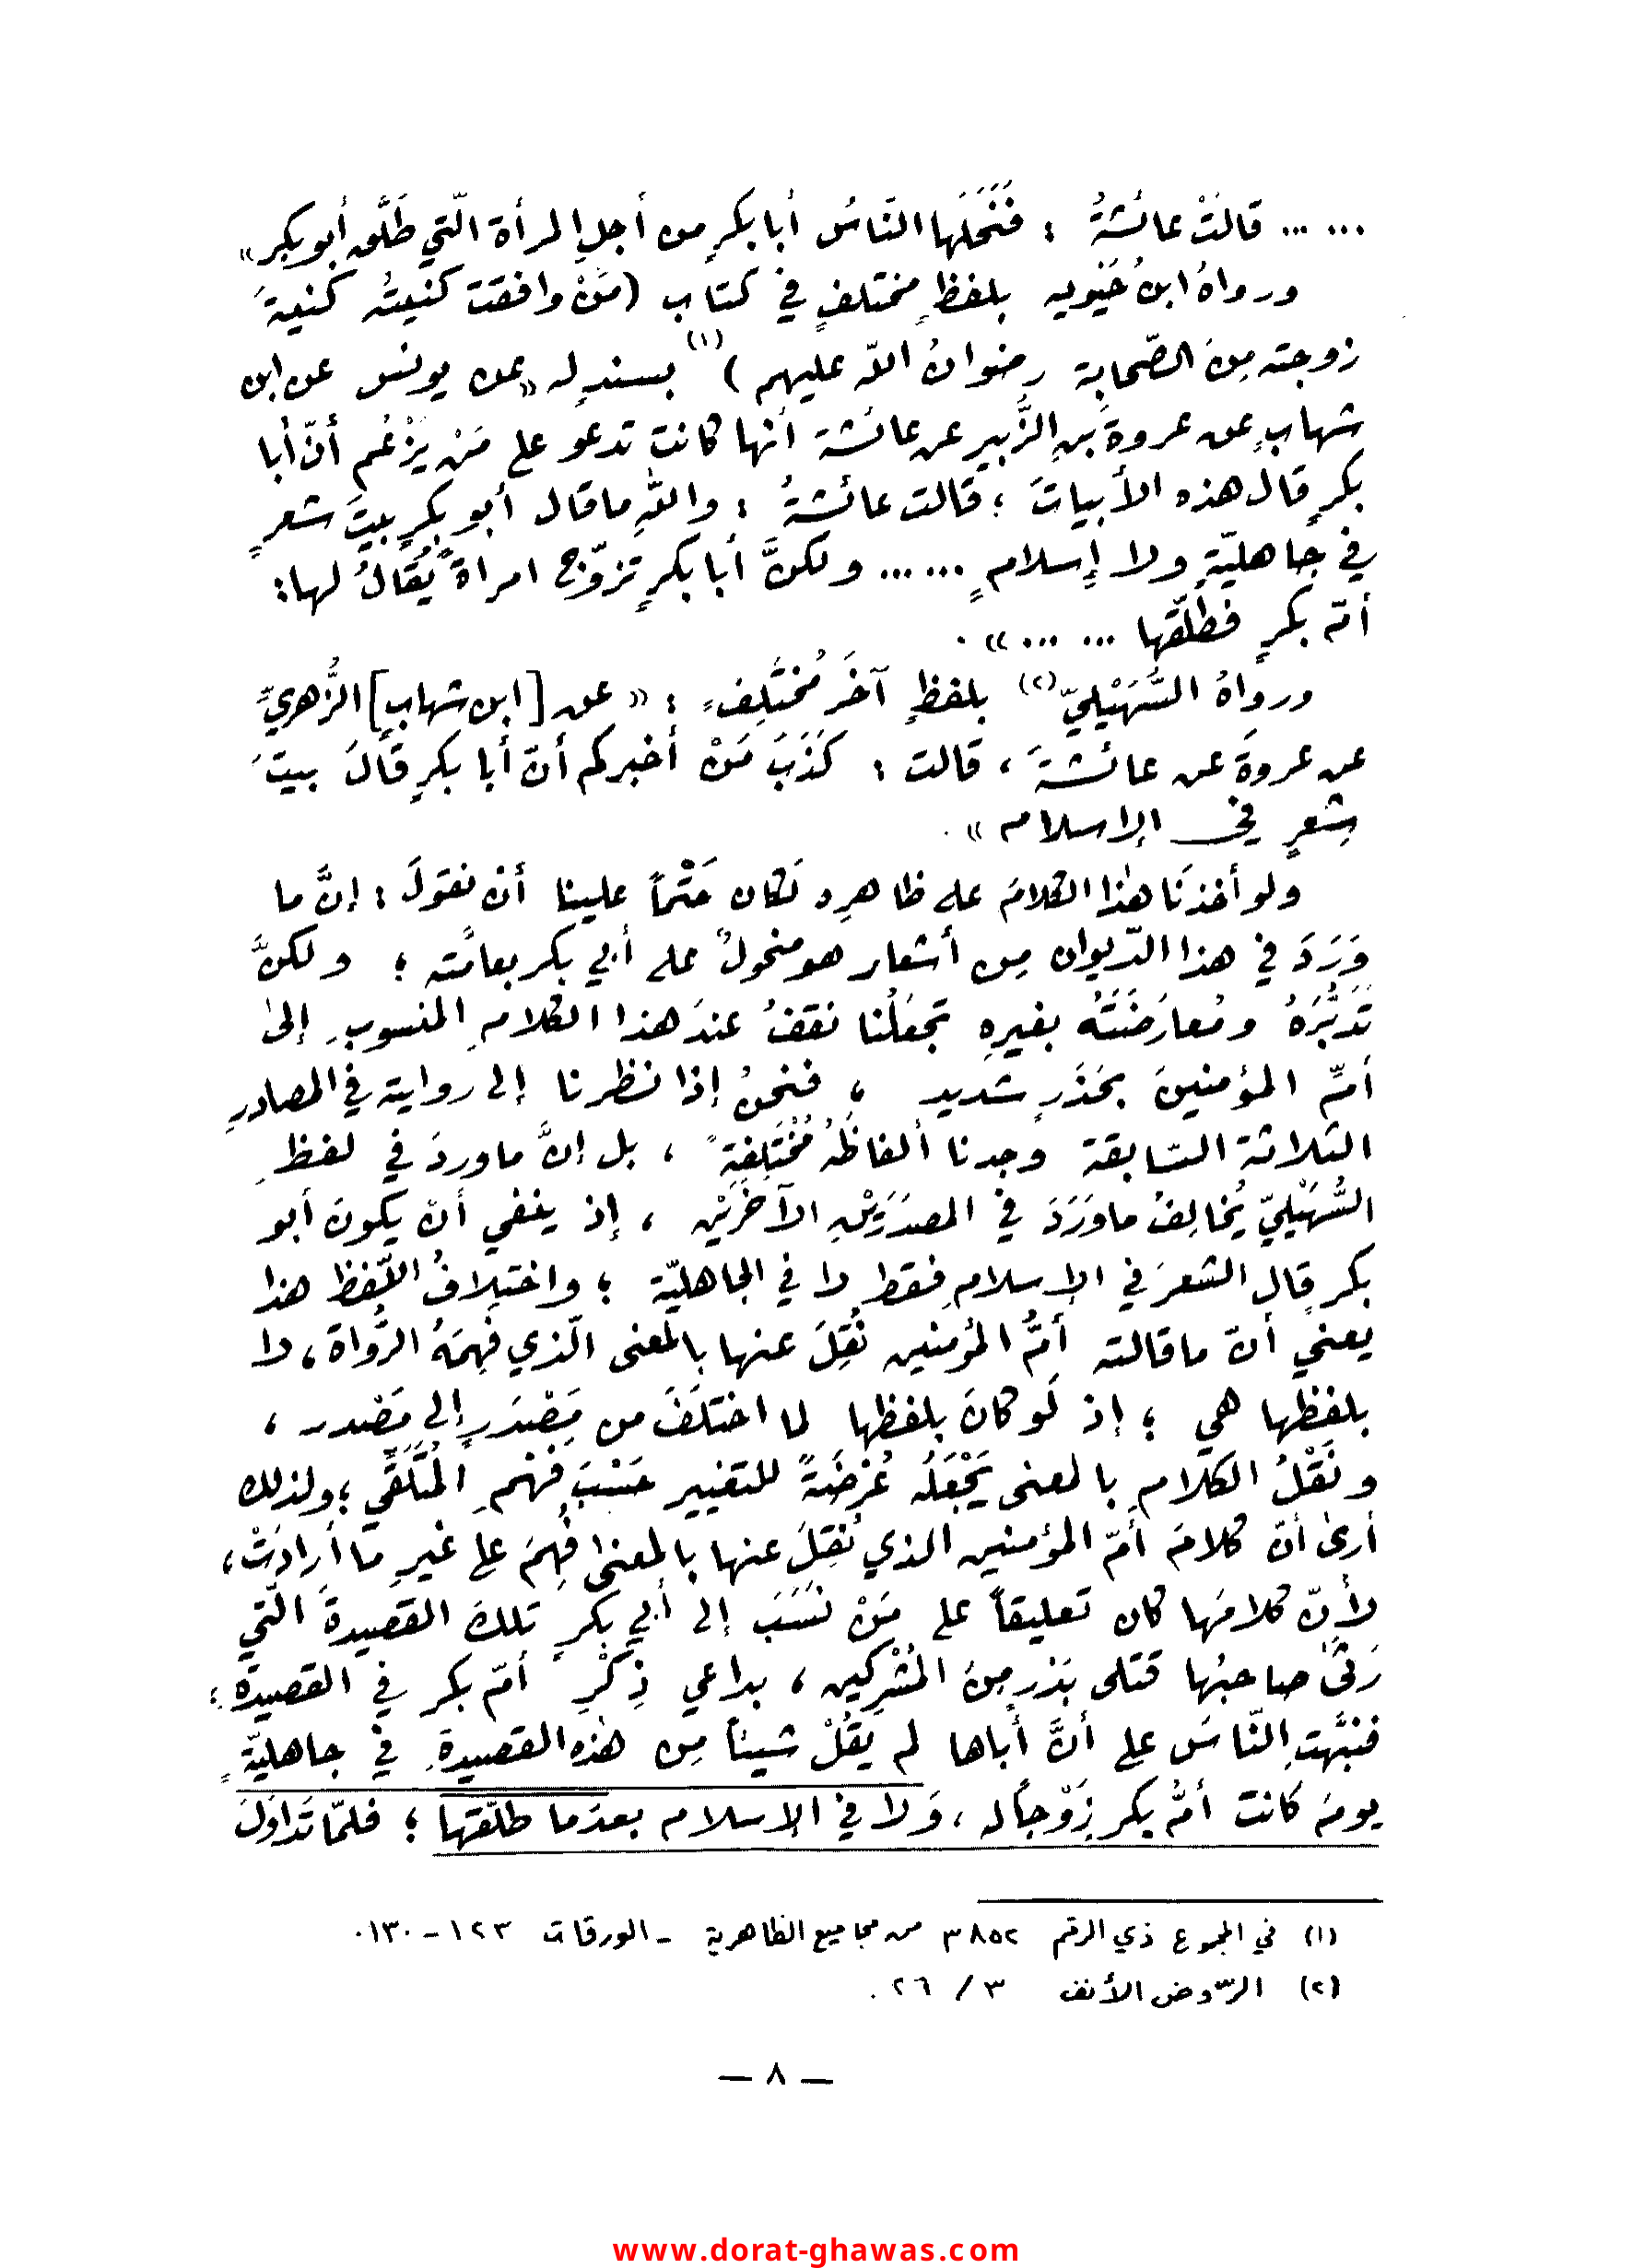 ... ... قالَتْ عائشةُ : فَنَحَلَها النّاسُ أبا بكرٍ من أجلِ المرأة الّتي طَلَّق أبو بكر»
ورواهُ ابنُ حَيّويه بلفظٍ مختلفٍ في كتاب (مَنْ وافقت كنيتُه كنيةَ
زوجته مِنَ الصّحابة رضوانُ اللّه عليهم)(١) بسندٍ له «عن يونس عن ابن
شهابٍ عن عروةَ بنِ الزُّبيرِ عن عائشة أنها كانت تدعو على مَنْ يَزْعُم أنّ أبا
بكرٍ قال هذه الأبياتَ ؛ قالت عائشةُ : واللّهِ ما قال أبو بكرٍ بيتَ شعرٍ
في جاهليّةٍ ولا إسلامٍ ... ... ولكنَّ أبا بكرٍ تزوّج امرأةً يُقالُ لها:
أمّ بكرٍ فطلّقها ... ...» .
ورواهُ السُّهَيْليّ(٢) بلفظٍ آخَر مُختَلِفٍ : « عن [ابن شهابٍ] الزُّهريِّ
عن عروةَ عن عائشةَ ، قالت : كَذَبَ مَنْ أخبركم أنّ أبا بكرٍ قالَ بيتَ
شِعرٍ في الإسلام » .
ولو أخذنَا هٰذا الكلامَ على ظاهرِه لكان حَتْماً علينا أن نقولَ : إنَّ ما
وَرَدَ في هذا الدّيوان مِن أشعار هو منحولٌ على أبي بكر بعامّته ؛ ولكنَّ
تَدَبُّرَهُ ومُعارَضَتَهُ بغيرِهِ تجعَلُنا نقفُ عندَ هذا الكلامِ المنسوبِ إلى
أمِّ المؤمنينَ بحَذَرٍ شديد ، فنحنُ إذا نظرنا إلى روايته في المصادرِ
الثلاثة السّابقة وجدنا ألفاظَهُ مُختَلِفةً ، بل إنَّ ما وردَ في لفظِ
السُّهَيْليّ يُخالِفُ ما وَرَدَ في المصدَرَيْنِ الآخَرَيْنِ ، إذ ينفي أنْ يكونَ أبو
بكرٍ قال الشعرَ في الإسلامِ فقط لا في الجاهليّة ؛ واختِلافُ اللّفظ هذا
يعني أنّ ما قالته أمُّ المؤمنين نُقِلَ عنها بالمعنى الّذي فهِمَهُ الرُّواة ، لا
بلفظِها هي ؛ إذ لَو كانَ بلفظِها لما اختَلَفَ من مَصْدَرٍ إلى مَصْدر ،
ونَقْلُ الكلامِ بالمعنى يَجْعَلُه عُرْضَةً للتغيير حَسْبَ فَهْمِ المُتَلَقِّي ؛ ولذلك
أرى أنّ كلامَ أمّ المؤمنين الذي نُقِلَ عنها بالمعنى فُهِمَ على غيرِ ما أرادَتْ،
لأنّ كلامَها كان تعليقاً على مَنْ نَسَبَ إلى أبي بكرٍ تلكَ القصيدةَ الّتي
رَثى صاحبُها قتلى بَدْرٍ مِنَ المُشركين ، بداعي ذِكْرِ أمّ بكر في القصيدة ؛
فنبّهتِ النّاسَ على أنَّ أباها لم يَقُلْ شيئاً مِن هٰذه القصيدةِ في جاهليّةٍ
يومَ كانت أمُّ بكرٍ زَوْجاً له ، وَلا في الإسلام بعدَما طلّقَها ؛ فلمّا تَداوَلَ
(١) في المجموع ذي الرقم ٣٨٥٢ من مجاميع الظاهرية - الورقات ١٢٣ - ١٣٠ .
(٢) الرّوض الأنف ٣ / ٢٦ .
— ٨ —
www.dorat-ghawas.com